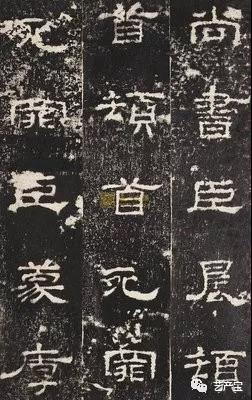 尚書臣晨頓
首頓首死罪
死罪臣蒙厚
艺产宝